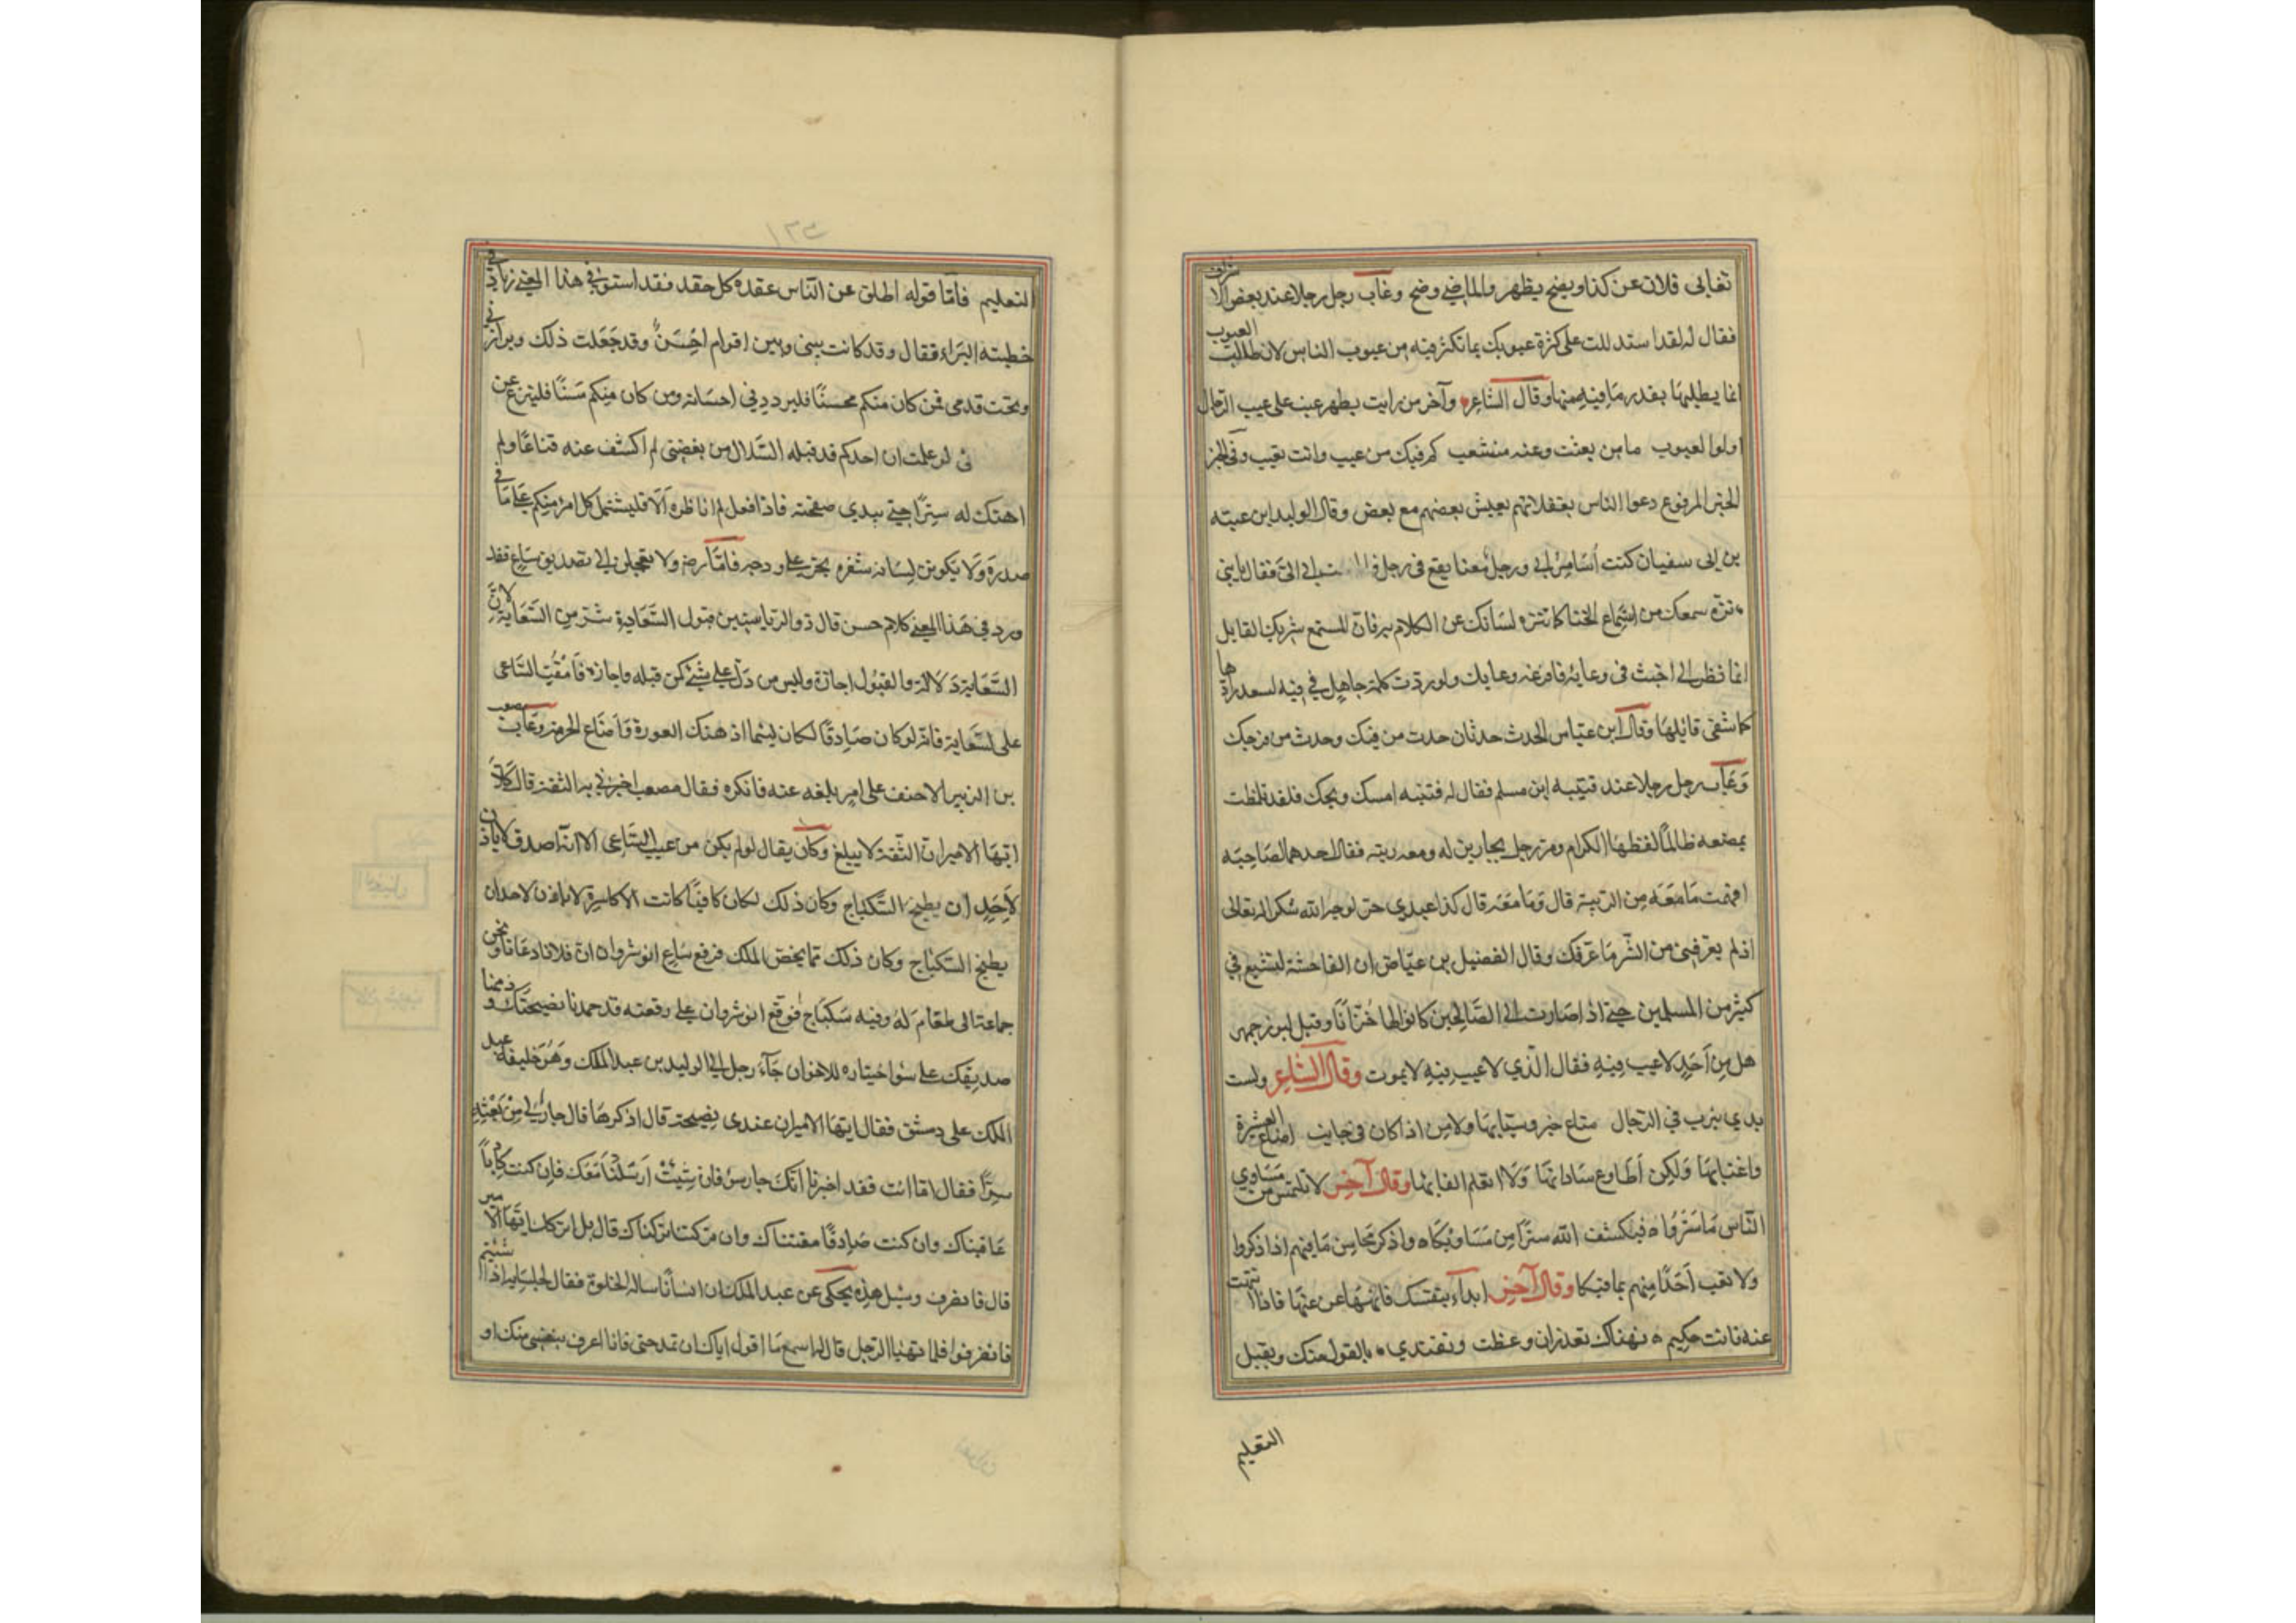 تغابى فلان عن كذا ويضح يظهر والماضى وضح وغاب رجل رجلا عند بعض الاشراف
فقال له لقد استدللت على كثرة عيوبك بما تكثر فيه من عيوب الناس لان طالب العيوب
انما يطلبها بقدر ما فيه منها وقال الشاعر وآخر من رايت بظهر عيب على عيب الرجال
اولوا العيوب ما من بعثت وعنه منشعب كم فيك من عيب وانت تعيب وفى
الخبر المرفوع دعوا الناس بغفلاتهم يعيش بعضهم مع بعض وقال الوليد ابن عيتبه
بن ابى سفيان كنت أساير ابى ورجل معنا يقع فى رجل الىّ فقال يا بنى
نزه سمعك من استماع الخنا كما تنزه لسانك عن الكلام به فان المستمع شريك القايل
انما نظر الى اخبث فى وعائه فافرغه وعايك ولو ردت كلمة جاهل في فيه لسعد رادها
كما شقى قايلها وقال ابن عباس الحدث حدثان حدث من فيك وحدث من فرجك
وعاب رجل رجلا عند قتيبه ابن مسلم فقال له قتيبه امسك ويحك فلقد تلمظت
بمضغه طالما لفظها الكرام ومر رجل بجارين له ومعه ريبه فقال احدهما لصاحبه
افهمت ما معه من الريبه قال وما معه قال كذا عبدي حر لوجه الله شكرا له تعالى
اذ لم يعرفنى من الشر ما عرفك وقال الفضيل بن عياض ان الفاحشة لتشيع في
كثير من المسلمين حتى اذا صارت الى الصالحين كانوا لها خزانا وقيل لبوزجمهر
هل من أحد لا عيب فيه فقال الذي لا عيب فيه لا يموت وقال الشاعر ولست
بدي نيرب في الرجال مناع خير وسبابها ولا من اذا كان فى جانب اضاع العشيرة
واغتابها ولكن أطاوع ساداتها ولا اتعلم القابها وقال آخر لا تلتمس من مساوي
الناس ما ستروا فيكشف الله سترا من مساويكا واذكر محاسن ما فيهم اذا ذكروا
ولا تعب أحدا منهم بما فيكا وقال آخر ابدأ بنفسك فانهها عن غيها فاذا انتهت
عنه فانت حكيم فهناك تعذر ان وعظت وتقتدي بالقول منك ويقبل
التعليم
١٣٥
التعليم فأمّا قوله اطلق عن الناس عقده كل حقد فقد استوفى هذا المعنى زياد في
خطبته البتراء فقال وقد كانت بينى وبين اقوام احن وقد جعلت ذلك دبر اذنى
وتحت قدمى فمن كان منكم محسنا فليزدد في احسانه ومن كان منكم مسئا فلينزع عن
انى لو علمت ان احدكم قد قتله السلال من بغضتى لم اكشف عنه قناعا ولم
اهتك له سترا حتى يبدي صفحته فاذا فعل لم اناظره ألا فليشتمل كل امرء منكم على ما فى
صدره ولا يكونن لسانه شفرة تجرى على ودجه فامّا ولا تعجلن الى تصديق ساع فقد
ورد فى هذا المعنى كلام حسن قال ذو الرياستين قبول السعاية شر من السعاية لانّ
السعاية دلالة والقبول اجازة وليس من دل على شئ كمن قبله واجازه فامقت الساعى
على السعاية فانه لو كان صادقا لكان لئيما اذ هتك العورة واضاع الحرمة وعاتب مصعب
بن الزبير الاحنف على امر بلغه عنه فانكره فقال مصعب اخبرنى به الثقة قال كلا
ايها الامير ان الثقة لا يبلغ وكان يقال لو لم يكن من عيب الساعى الا انه اصدق
لأحد ان يطبخ السكباج وكان ذلك لكان كافيا كانت الاكاسرة لا ياذن لاحد ان
يطبخ السكباج وكان ذلك مما يختص الملك فرفع ساع انوشروان ان فلانا دعانا ونحن
جماعة الى طعام له وفيه سكباج فوقع انوشروان على رقعته قد حمدنا نصيحتك وذممنا
صديقك على سوا اختياره للاخوان جآء رجل الى الوليد بن عبد الملك وهو خليفة عبد
الملك على دمشق فقال ايها الامير ان عندى نصيحة قال اذكرها قال جار لى من بعثه
سرّا فقال اما انت فقد اخبرتنا انك جار سوء فان شئت أرسلنا معك فان كنت كاذبا
عاقبناك وان كنت صادقا مقتناك وان تركتنا تركناك قال بل اتركك ايها الامير
قال فانصرف ومثل هذه يحكى عن عبد الملك ان انسانا ساله الخلوة فقال لجلسايه اذا شئتم
فانصرفوا فلما تهيا الرجل قال له اسمع ما اقول اياك ان تمدحنى فانا اعرف بنفسى منك او